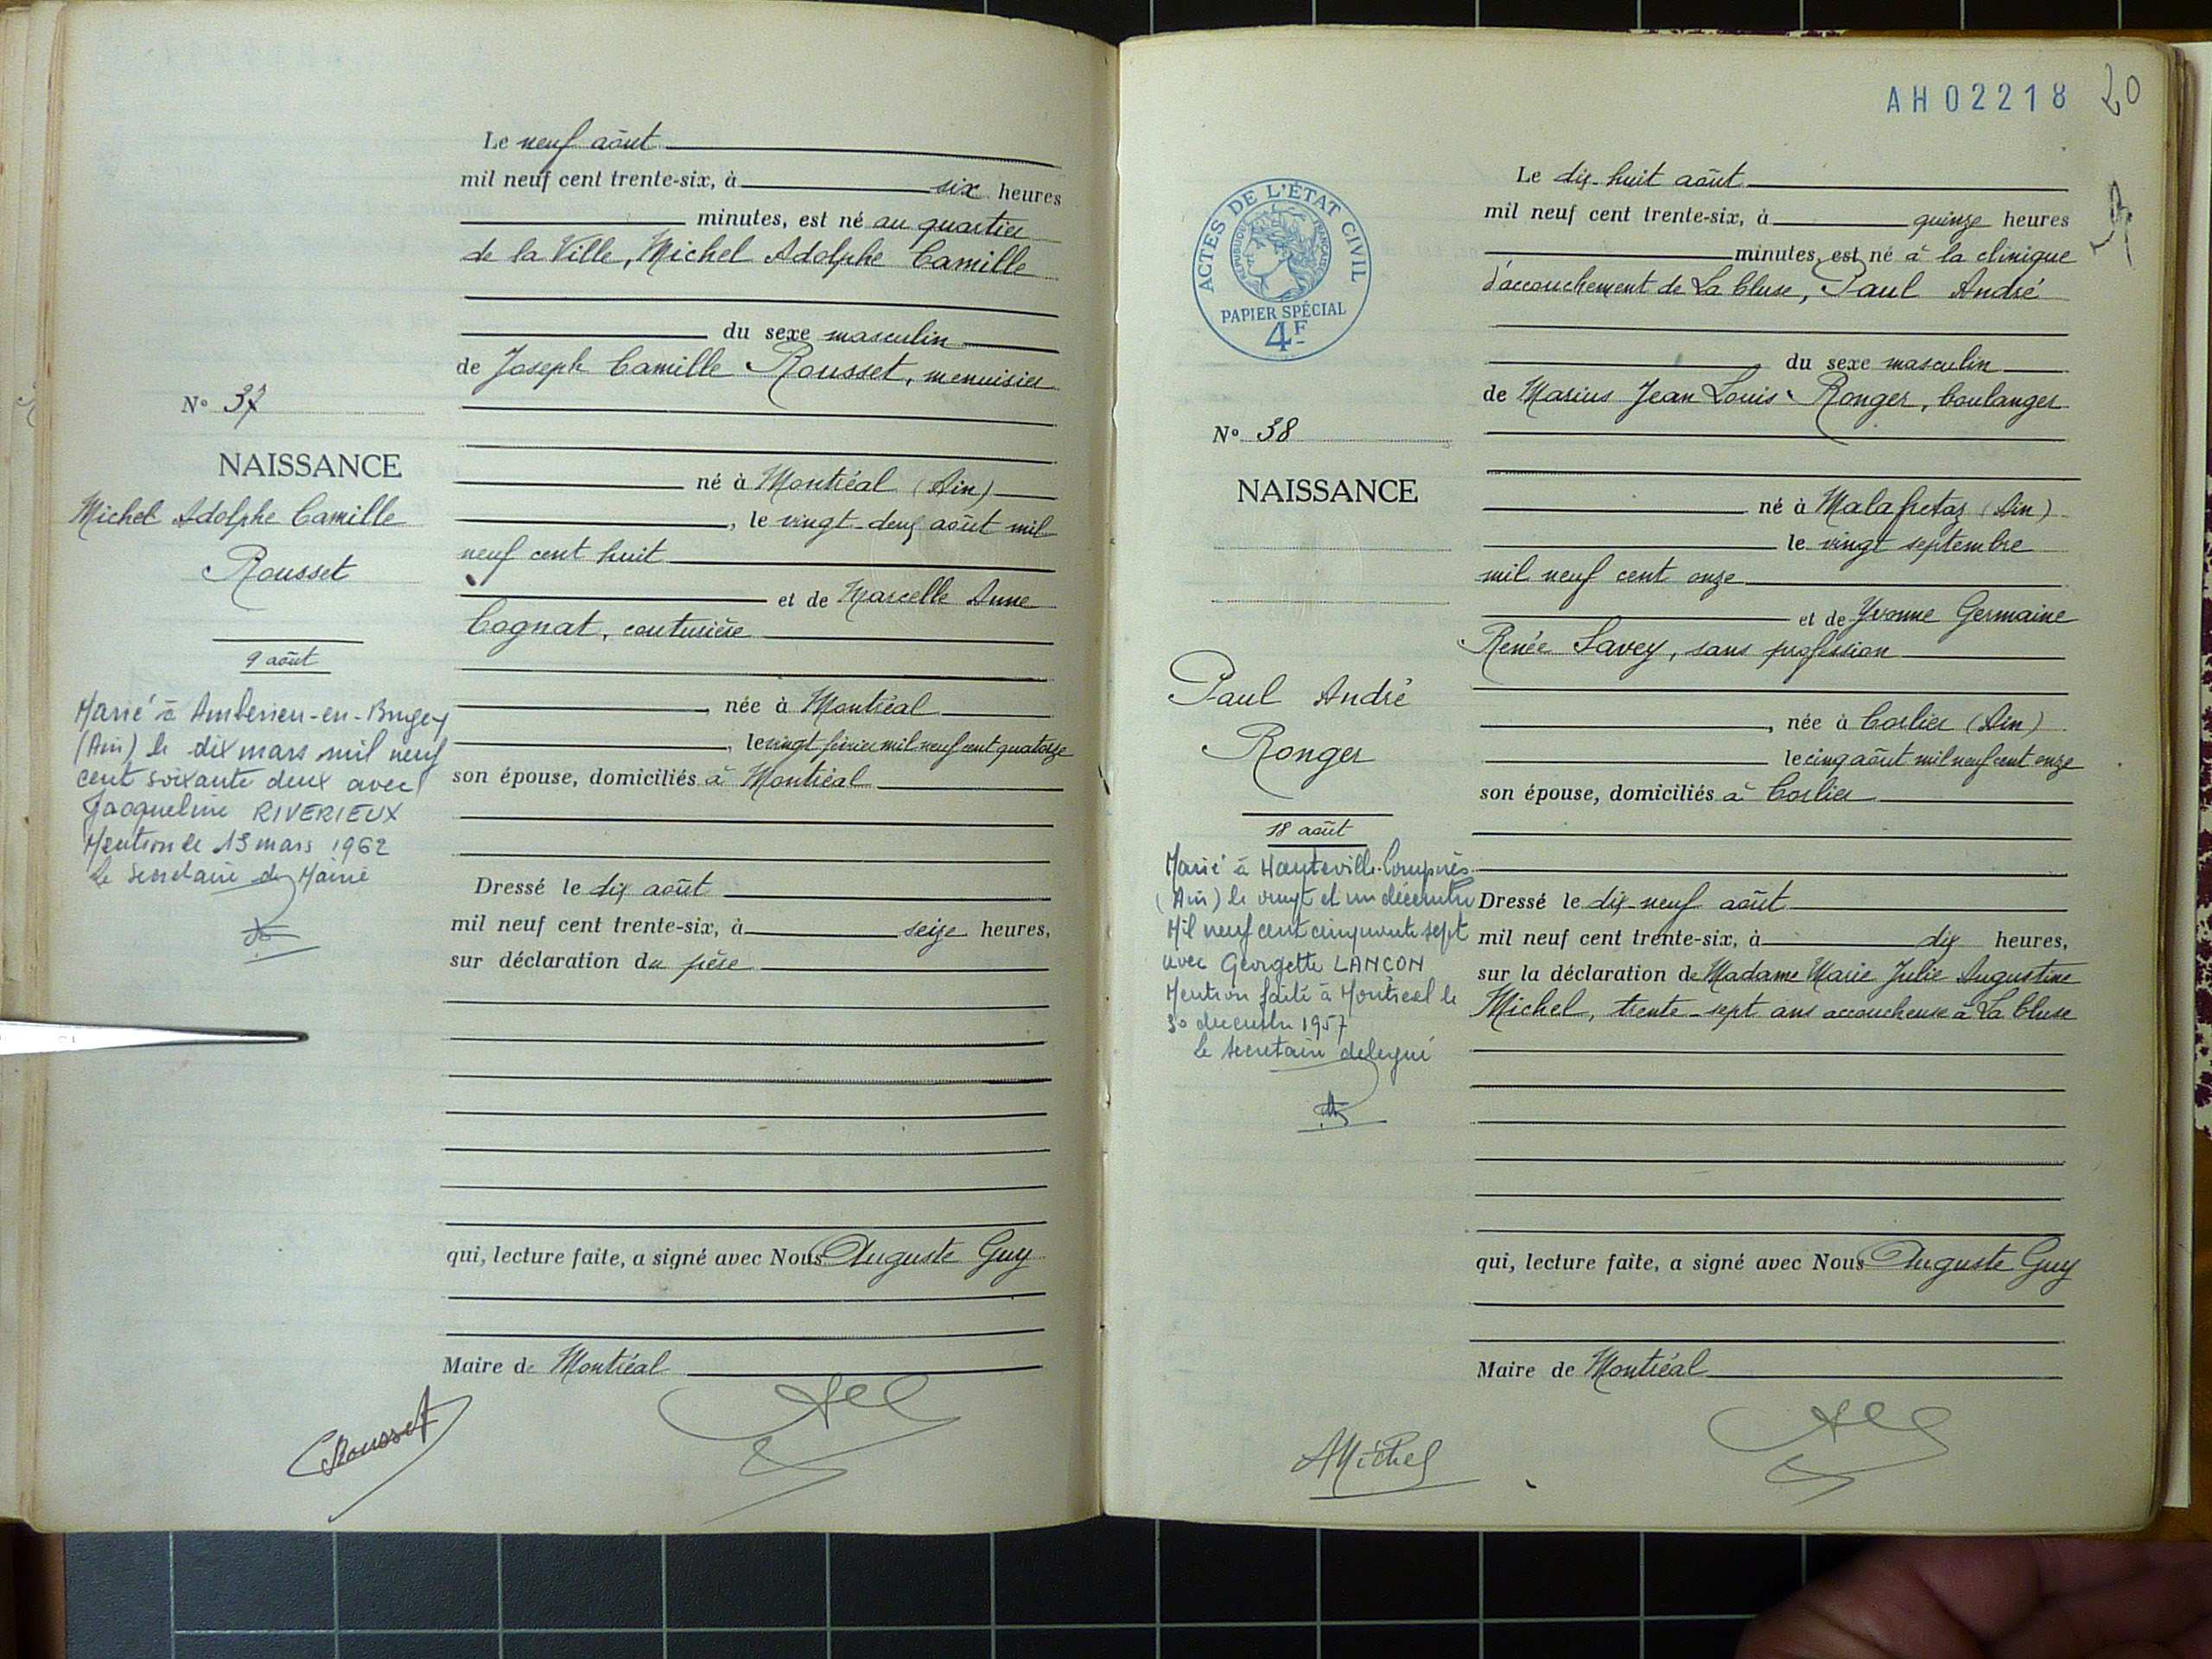 Le neuf août
mil neuf cent trente-six, à six heures
minutes, est né au quartier
de la Ville, Michel Adolphe Camille
du sexe masculin
de Joseph Camille Rousset, menuisier
N° 37
NAISSANCE
Michel Adolphe Camille
Rousset
9 août
Marié à Ambérieu-en-Bugey
(Ain) le dix mars mil neuf
cent soixante deux avec
Jacqueline RIVERIEUX
Mention le 13 mars 1962
Le Secrétaire de Mairie
né à Montréal (Ain)
, le vingt-deux août mil
neuf cent huit
et de Marcelle Anne
Cognat, couturière
, née à Montréal
, le vingt février mil neuf cent quatorze
son épouse, domiciliés à Montréal
Dressé le dix août
mil neuf cent trente-six, à seize heures,
sur déclaration du père
qui, lecture faite, a signé avec Nous Auguste Guy
Maire de Montréal
CRousset
AH02218
20
ACTES DE L'ÉTAT CIVIL
RÉPUBLIQUE FRANÇAISE
PAPIER SPÉCIAL
4F
Le dix-huit août
mil neuf cent trente-six, à quinze heures
minutes, est né à la clinique
d'accouchement de La Cluse, Paul André
du sexe masculin
de Marius Jean Louis Ronger, boulanger
N° 38
NAISSANCE
Paul André
Ronger
18 août
Marié à Hauteville-Lompnès
(Ain) le vingt et un décembre
Mil neuf cent cinquante sept
avec Georgette LANCON
Mention faite à Montréal le
30 décembre 1957
Le Secrétaire délégué
né à Malafretaz (Ain)
le vingt septembre
mil neuf cent onze
et de Yvonne Germaine
Renée Savey, sans profession
, née à Corlier (Ain)
le cinq août mil neuf cent onze
son épouse, domiciliés à Corlier
Dressé le dix-neuf août
mil neuf cent trente-six, à dix heures,
sur la déclaration de Madame Marie Julie Augustine
Michel, trente-sept ans accoucheuse à La Cluse
qui, lecture faite, a signé avec Nous Auguste Guy
Maire de Montréal
AMichel